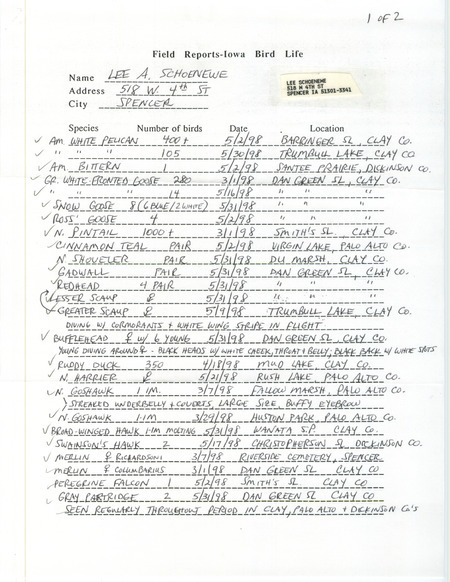 1 OF 2
Field Reports-Iowa Bird Life
Name LEE A. SCHOENEWE
Address 518 W. 4th ST
City SPENCER
LEE SCHOENEWE
518 W 4TH ST
SPENCER IA 51301-3341
Species Number of birds Date Location
Am. WHITE PELICAN 400+ 5/2/98 BARRINGER SL, CLAY CO.
" " " 105 5/30/98 TRUMBULL LAKE, CLAY CO
Am. BITTERN 1 5/2/98 SANTEE PRAIRIE, DICKINSON CO.
GR. WHITE-FRONTED GOOSE 280 3/1/98 DAN GREEN SL, CLAY CO.
" " 14 5/16/98 " " "
SNOW GOOSE 8 (6 BLUE/2 WHITE) 5/31/98 " " "
ROSS' GOOSE 4 5/2/98 " " "
N. PINTAIL 1000+ 3/1/98 SMITH'S SL, CLAY CO.
CINNAMON TEAL PAIR 5/2/98 VIRGIN LAKE, PALO ALTO CO.
N SHOVELER PAIR 5/31/98 DU MARSH, CLAY CO.
GADWALL PAIR 5/31/98 DAN GREEN SL, CLAY CO.
REDHEAD 4 PAIR 5/31/98 " " "
LESSER SCAUP ♀ 5/31/98 " " "
GREATER SCAUP ♀ 5/9/98 TRUMBULL LAKE, CLAY CO
DIVING W/ CORMORANTS + WHITE WING STRIPE IN FLIGHT
BUFFLEHEAD ♀ W/ 6 YOUNG 5/31/98 DAN GREEN SL CLAY CO.
YOUNG DIVING AROUND ♀ - BLACK HEADS W/ WHITE CHEEK, THROAT & BELLY, BLACK BACK W/ WHITE SPOTS
RUDDY DUCK 350 4/18/98 MUD LAKE, CLAY CO.
N. HARRIER ♀ 5/21/98 RUSH LAKE, PALO ALTO CO.
N. GOSHAWK 1 IM. 3/7/98 FALLOW MARSH, PALO ALTO CO.
STREAKED UNDERBELLY & COVERTS, LARGE SIZE, BUFFY EYEBROW
N. GOSHAWK 1 IM 3/29/98 HUSTON PARK, PALO ALTO CO.
BROAD-WINGED HAWK 1 IM MOLTING 5/31/98 WANATA S.P. CLAY CO.
SWAINSON'S HAWK 2 5/17/98 CHRISTOPHERSON SL DICKINSON CO.
MERLIN ♀ RICHARDSONI 3/7/98 RIVERSIDE CEMETERY, SPENCER
MERLIN ♀ COLUMBARIUS 3/1/98 DAN GREEN SL CLAY CO
PEREGRINE FALCON 1 5/2/98 SMITH'S SL CLAY CO.
GRAY PARTRIDGE 2 5/31/98 DAN GREEN SL CLAY CO
SEEN REGULARLY THROUGHOUT PERIOD IN CLAY, PALO ALTO & DICKINSON CO'S